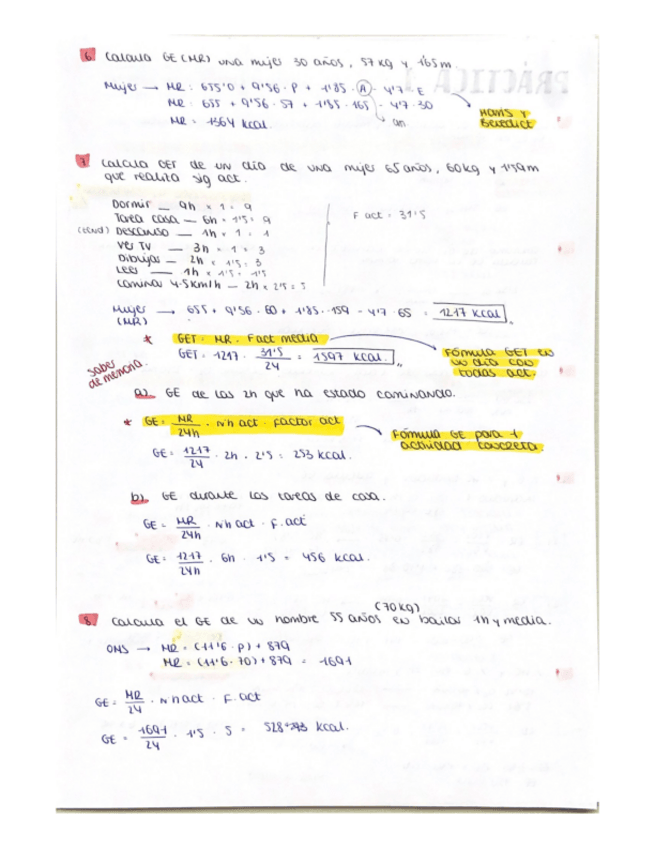 6. Calcula GE (MR) una mujer 30 años, 57 kg y 1'65 m.
Mujer → MR: 655'0 + 9'56 · P + 1'85 · A - 4'7 · E
MR: 655 + 9'56 · 57 + 1'85 · 165 - 4'7 · 30
cm
MR = 1364 kcal.
Harris y Benedict
7. Calcula GET de un día de una mujer 65 años, 60 kg y 1'59 m
que realiza sig act.
Dormir — 9h × 1 = 9
Tarea casa — 6h × 1'5 = 9
Descanso — 1h × 1 = 1
Ver TV — 3h × 1 = 3
Dibujar — 2h × 1'5 = 3
Leer — 1h × 1'5 = 1'5
Caminar 4.5 km/h — 2h × 2'5 = 5
F act = 31'5
Mujer (MR) → 655 + 9'56 · 60 + 1'85 · 159 - 4'7 · 65 = 1217 kcal
* GET = MR · Fact media
GET = 1217 · 31'5 / 24 = 1597 kcal.
Fórmula GET en un día con todas act.
saber de memoria.
a) GE de las 2h que ha estado caminando.
* GE = MR / 24h · Nh act · Factor act
Fórmula GE para 1 actividad concreta.
GE = 1217 / 24 · 2h · 2'5 = 253 kcal.
b) GE durante las tareas de casa.
GE = MR / 24h · Nh act · F. act
GE = 1217 / 24h · 6h · 1'5 = 456 kcal.
8. Calcula el GE de un hombre 55 años (70 kg) en bailar 1h y media.
OMS → MR = (11'6 · P) + 879
MR = (11'6 · 70) + 879 = 1691
GE = MR / 24 · Nh act · F. act
GE = 1691 / 24 · 1'5 · 5 = 528 kcal.